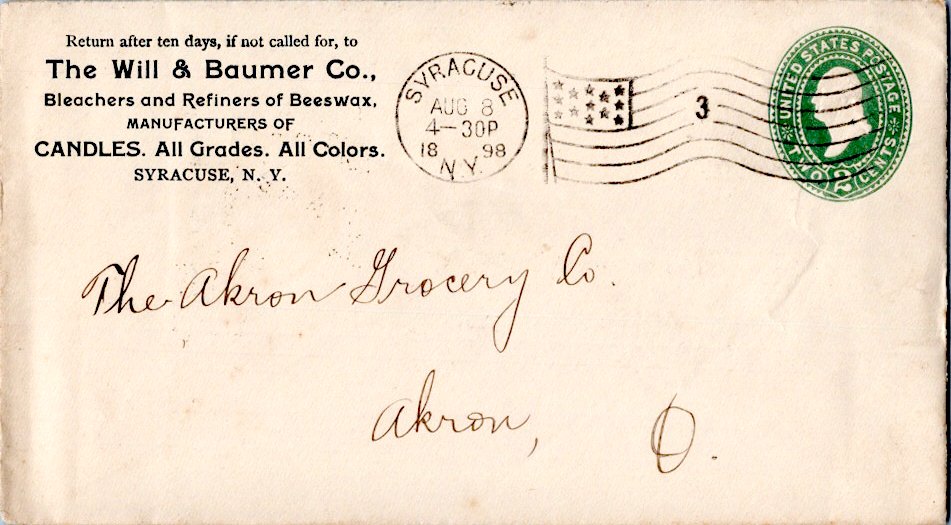 Return after ten days, if not called for, to
The Will & Baumer Co.,
Bleachers and Refiners of Beeswax,
MANUFACTURERS OF
CANDLES. All Grades. All Colors.
SYRACUSE, N. Y.
SYRACUSE
AUG 8
4-30P
18 98
N.Y.
3
UNITED STATES POSTAGE
TWO 2 CENTS
The Akron Grocery Co.
Akron, O.